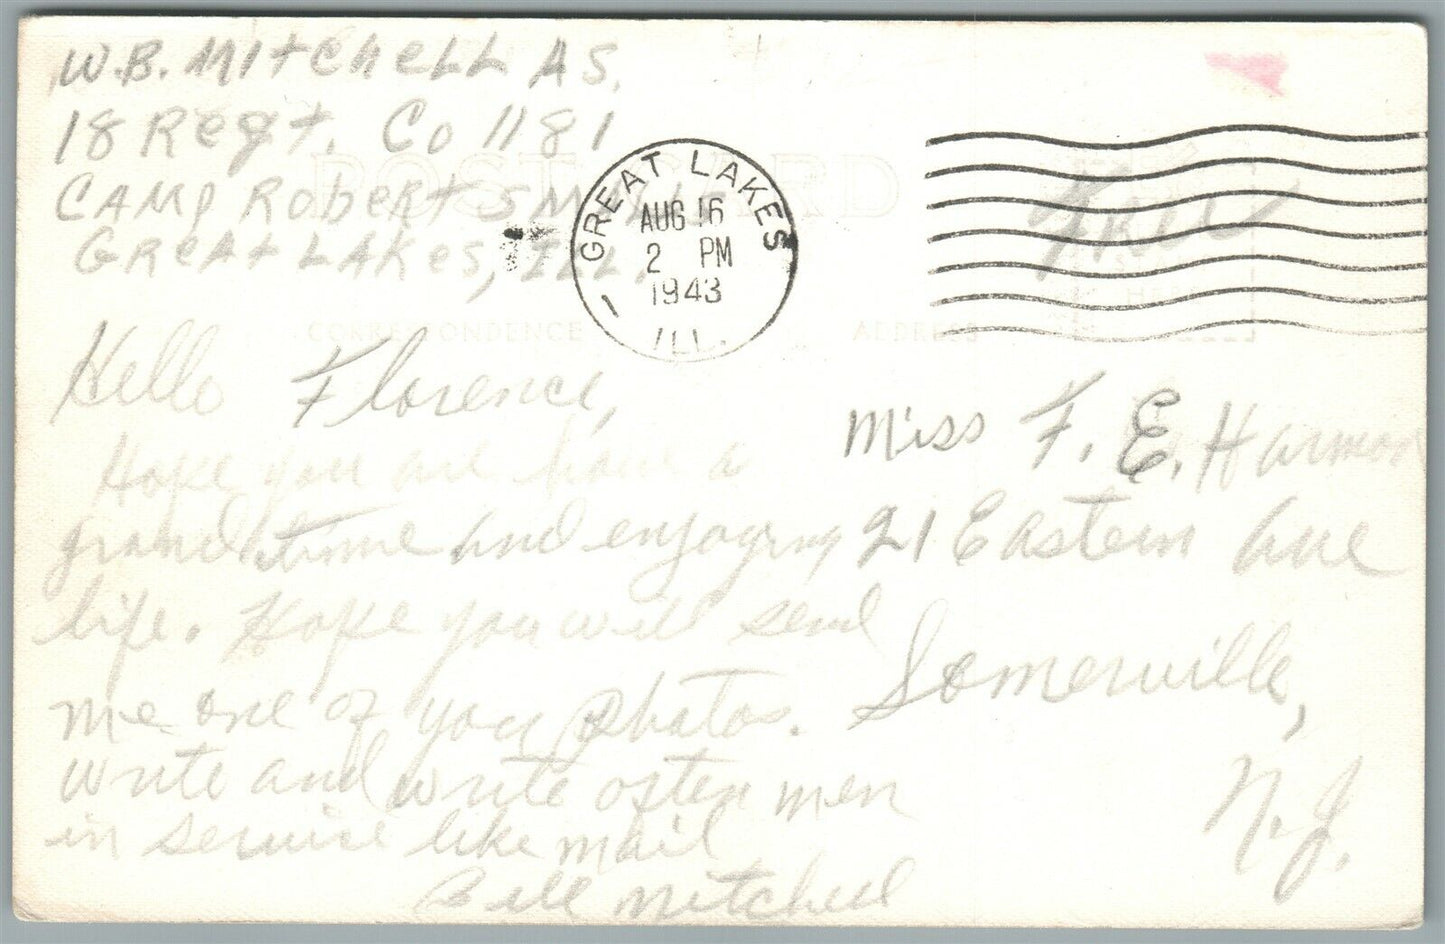 W.B. Mitchell A S.
18 Regt. Co 1181
Camp Robert Smalls
Great Lakes, Ill.
POST CARD
GREAT LAKES
AUG 16
2 PM
1943
ILL.
Free
CORRESPONDENCE
ADDRESS
HERE
Hello Florence,
Hope you are have a
grand time and enjoying
life. Hope you will send
me one of you photos.
write and write often men
in service like mail
Bill Mitchell
Miss F. E. Harmon
21 Eastern Ave
Somerville,
N.J.